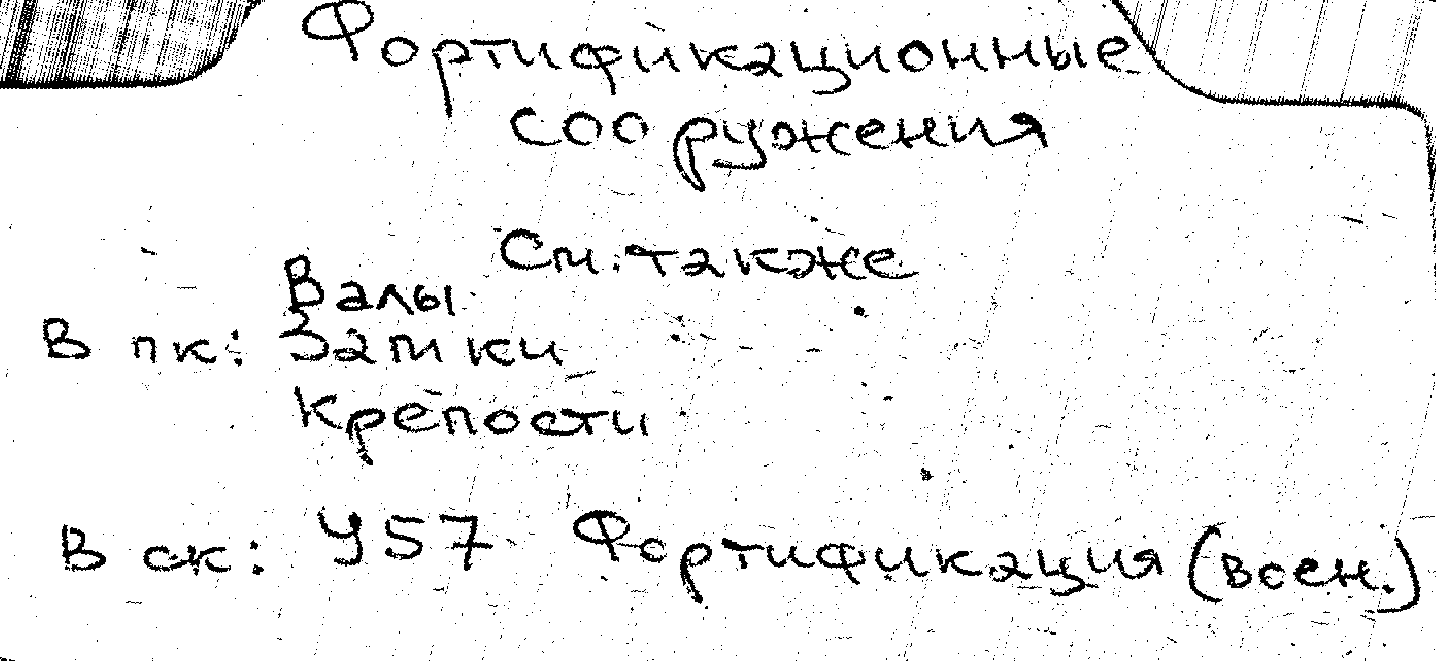 Фортификационные
сооружения
См. также
Валы
В пк: Замки
Крепости
В ск: У57 Фортификация (воен.)